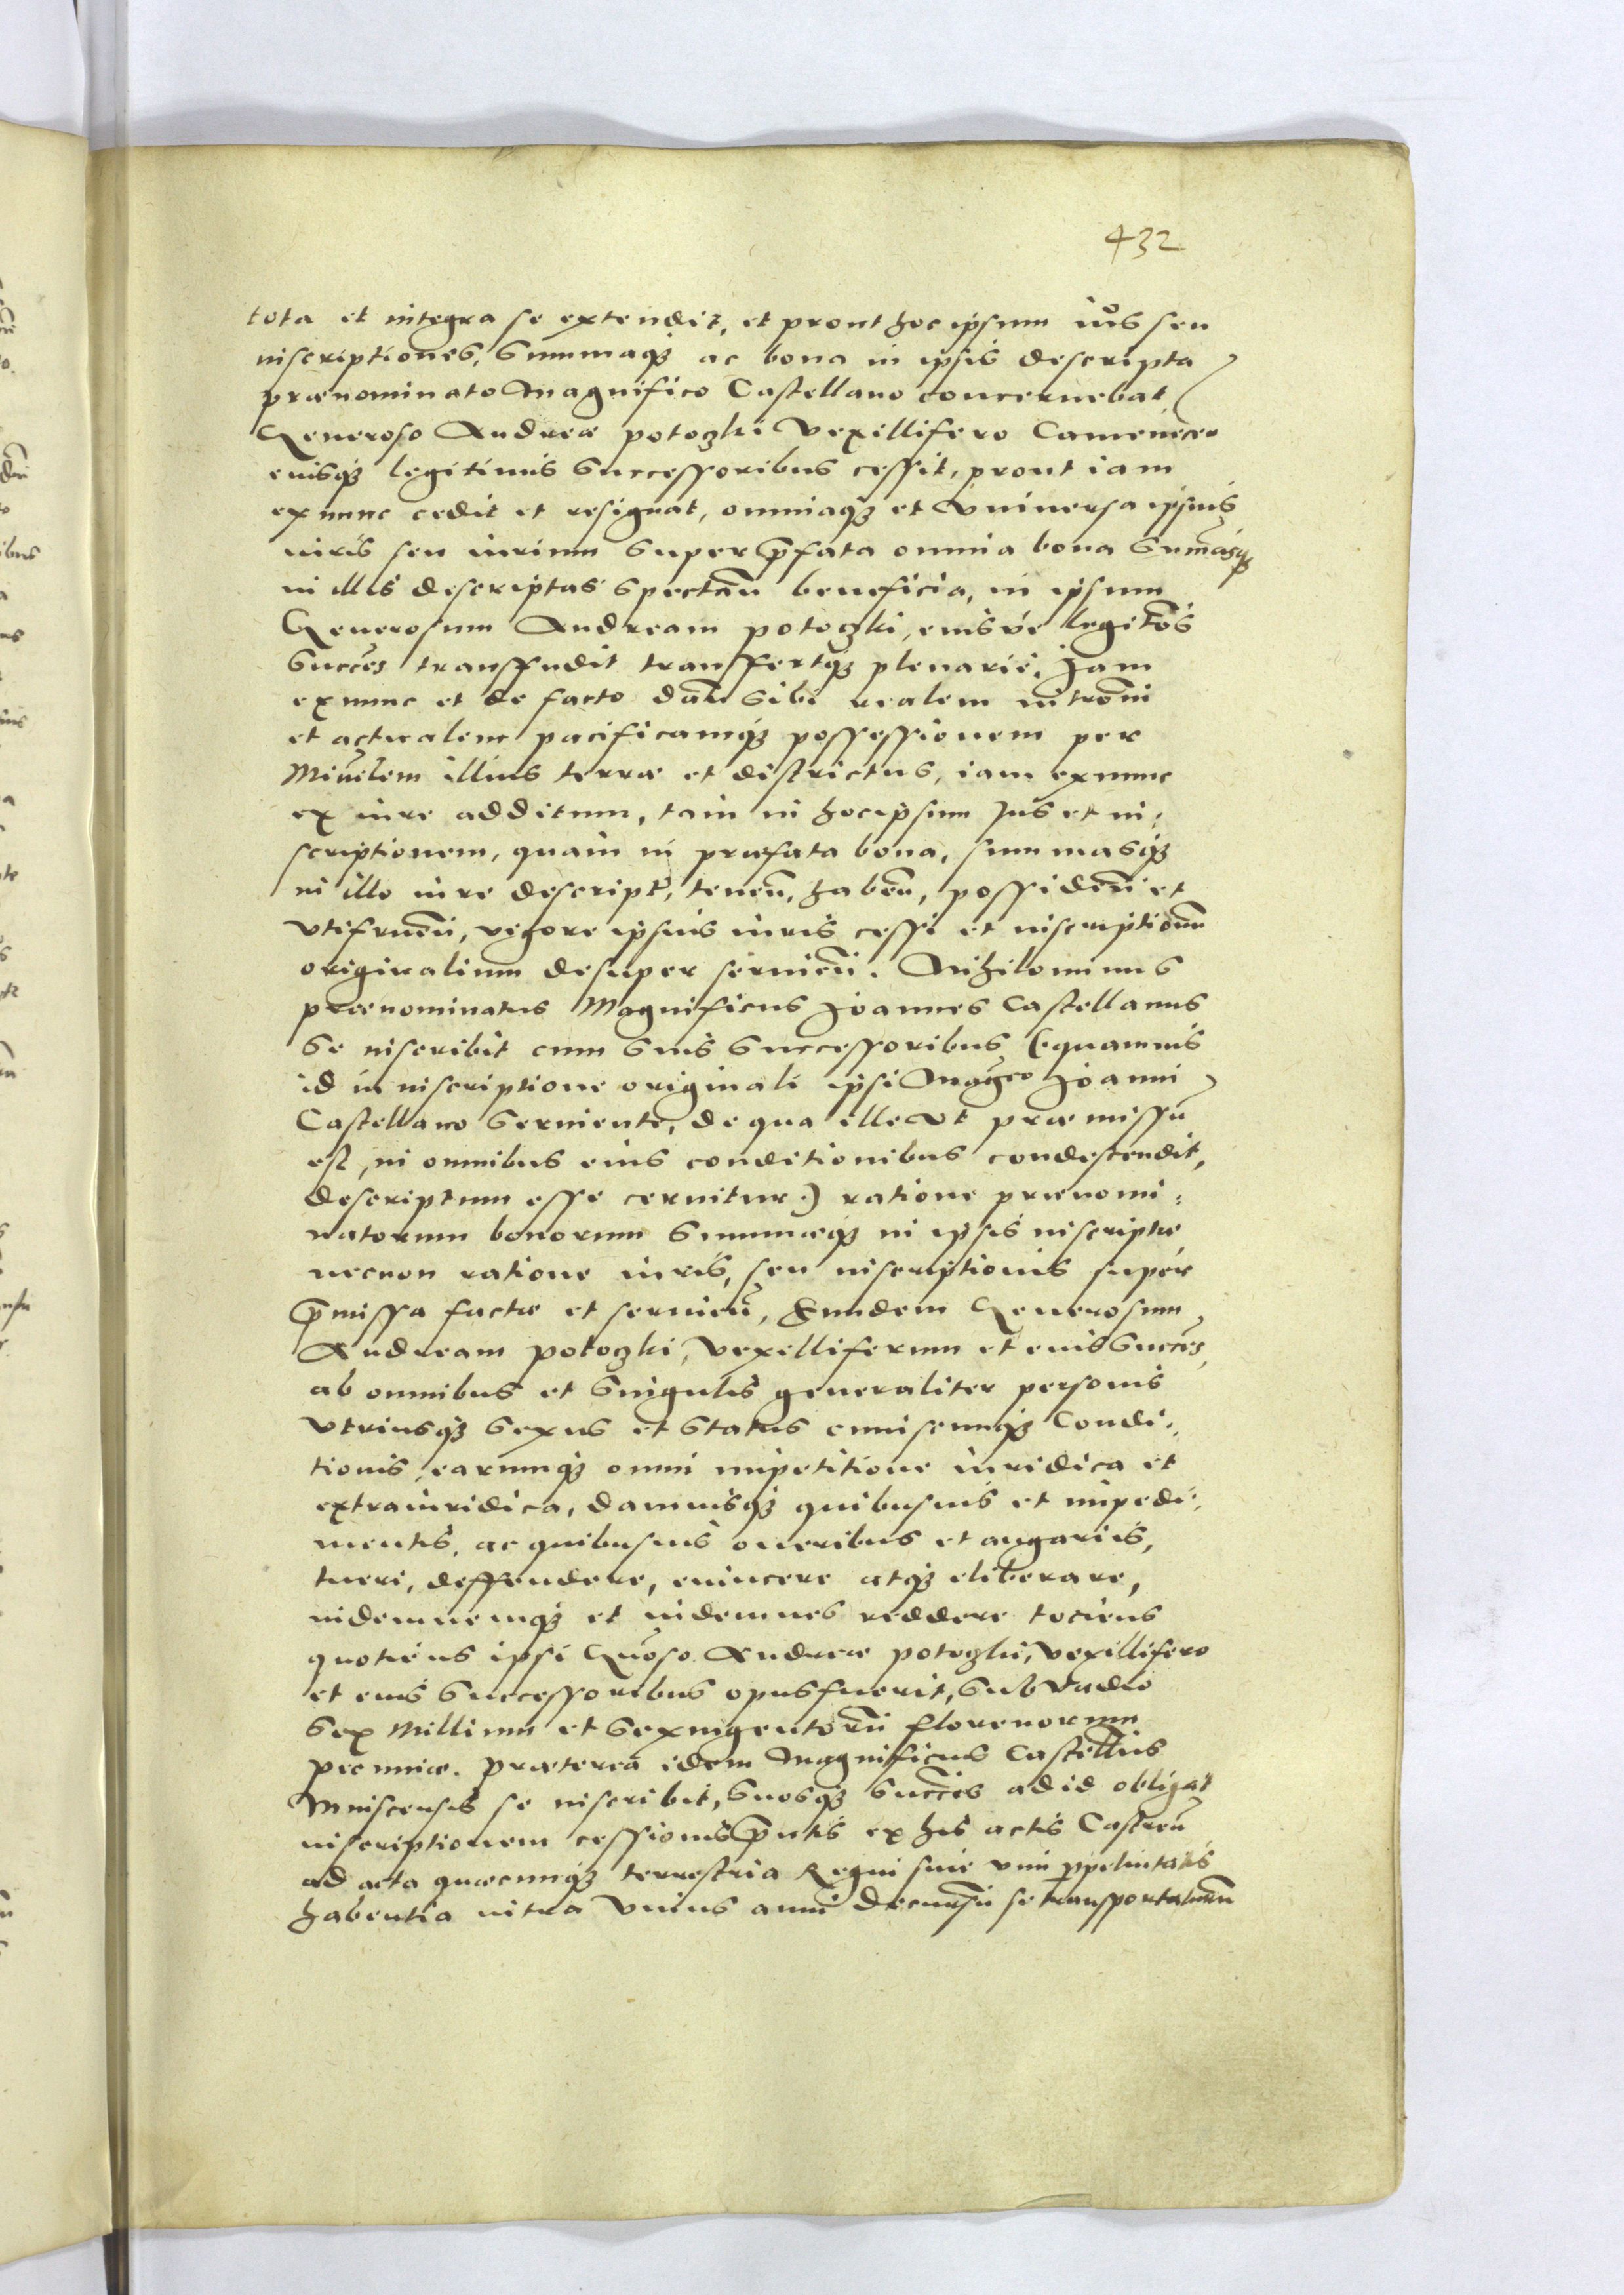 432
tota et integra se extendit, et prout hoc ipsum ius seu
inscriptiones, Summaqꝫ ac bona in ipsis descripta
prænominato Magnifico Castellano concernebat,
Generoso Andreæ potoczki Vexillifero Camenecen
eiusqꝫ legitimis Successoribus cessit, prout iam
ex nunc cedit et resignat, omniaqꝫ et Vniuersa ipsius
iuris seu iurium Super p̄fata omnia bona Sum̄asqꝫ
in illis descriptas Spectan̄ beneficia, in ipsum
Generosum Andream potoczki, eiusve legit̄os
Succēs transfudit transffertqꝫ plenarie, Jam
ex nunc et de facto dan̄ Sibi realem intrōm
et actualem pacificamqꝫ possessionem per
Min̄lem illius terræ et districtus, iam ex nunc
ex iure additum, tam in hoc ipsum Jus et in:
scriptionem, quam in præfata bona, summasqꝫ
in illo iure descript, tenen̄, haben̄, possiden̄ et
vtifruen̄, vigore ipsius iuris cessi et inscriptionum
originalium desuper seruien̄. Nihilominus
prænominatus Magnificus Joannes Castellanus
Se inscribit cum Suis Successoribus (quamuis
id in inscriptione originali ipsi Mag̃co Joanni
Castellano Seruiente, de qua ille vt præmissū
est, in omnibus eius conditionibus condescendit,
descriptum esse cernitur.) ratione prænomi:
natorum bonorum Summæqꝫ in ipsis inscriptæ
necnon ratione iuris, seu inscriptionis super
p̄missa factæ et seruien̄, Eundem Generosum
Andream potoczki, Vexilliferum et eius Succēs,
ab omnibus et Singulis generaliter personis
vtriusqꝫ Sexus et Status cuiuscunqꝫ Condi:
tionis, earumqꝫ omni impetitione iuridica et
extraiuridica, damnisqꝫ quibusuis et impedi:
mentis, ac quibusuis oneribus et angariis,
tueri, deffendere, euincere atqꝫ eliberare,
indemnemqꝫ et indemnes reddere tociens
quotiens ipsi Gn̄oso Andreæ potoczki, Vexillifero
et eius Successoribus opus fuerit, Sub Vadio
Sex Millium et Sexingentorū florenorum
pecuniæ. Præterea idem Magnificus Castell̄us
se inscribit, Suosqꝫ Succēs ad id obligat
inscriptionem cessionis p̄ntis ex his actis Castren̄
ad acta quæcunqꝫ terrestria Regni siue vim ꝑpetuitatis
habentia intra Vnius anni decursū se transportaturū